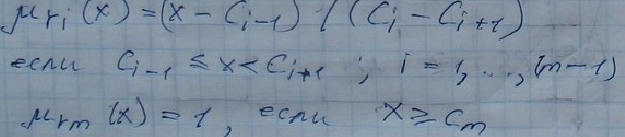 μ_{ri}(x) = (x - C_{i-1}) / (C_i - C_{i+1})
если C_{i-1} ≤ x < C_{i+1} ; i = 1, ..., (m-1)
μ_{rm}(x) = 1, если x ≥ C_m